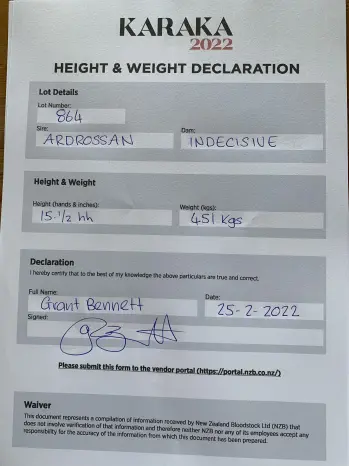 KARAKA
2022
HEIGHT & WEIGHT DECLARATION
Lot Details
Lot Number:
864
Sire: Dam:
ARDROSSAN INDECISIVE
Height & Weight
Height (hands & inches): Weight (kgs):
15·1/2 hh 451 Kgs
Declaration
I hereby certify that to the best of my knowledge the above particulars are true and correct.
Full Name: Date:
Grant Bennett 25-2-2022
Signed:
Please submit this form to the vendor portal (https://portal.nzb.co.nz/)
Waiver
This document represents a compilation of information received by New Zealand Bloodstock Ltd (NZB) that
does not involve verification of that information and therefore neither NZB nor any of its employees accept any
responsibility for the accuracy of the information from which this document has been prepared.